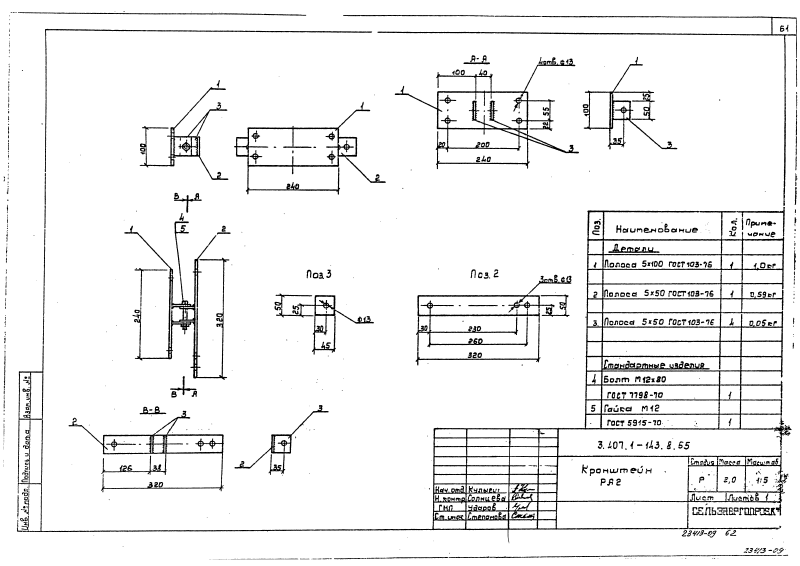 61
A-A
100 40
4отв. ø13
1
1
3
100
2
1
240
2
1
55
22
20
200
240
3
1
25
50
100
35
3
В А
4
5
1
2
240
320
В А
Поз 3
50
25
30
45
ø13
Поз. 2
3отв. ø13
30
230
260
320
25
50
В-В
3
2
126 38
320
3
2
35
Поз. Наименование Кол. Приме-
чание
Детали
1 Полоса 5х100 ГОСТ 103-76 1 1,0кг
2 Полоса 5х50 ГОСТ 103-76 1 0,59кг
3 Полоса 5х50 ГОСТ 103-76 4 0,05кг
Стандартные изделия
4 Болт М12х80
ГОСТ 7798-70 1
5 Гайка М12
ГОСТ 5915-70 1
3.407.1-143.8.65
Кронштейн
РА2
Стадия Масса Масштаб
Р 2,0 1:5
Лист Листов 1
Нач. отд.
Н. контр Солнцева
ГИП Ударов
Ст. инж Степанова
Инв. № подл. Подпись и дата Взам. инв. №
23413-09 62
23413-09